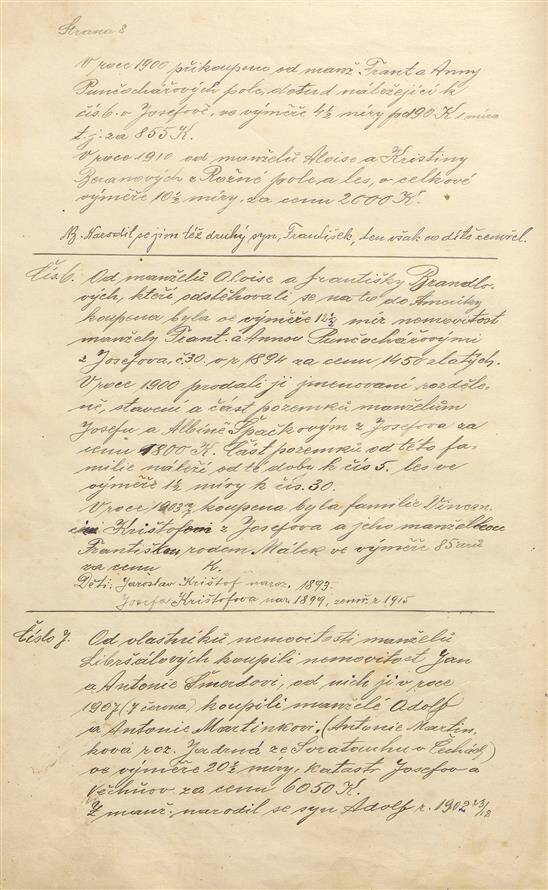 Strana 8
V roce 1900 přikoupeno od manž. Frant a Anny
Punčochářových pole, dotud náležející k
čís. 6. v Josefově, ve výměře 4½ míry pd 190 K 1 míra
t. j. za 855 K.
V roce 1910 od manželů Aloise a Kristiny
Beranových z Rožné pole a les, o celkové
výměře 10½ míry, za cenu 2000 K.
NB. Narodil se jim též druhý syn, František, ten však co dítě zemřel.
Čís. 6. Od manželů Aloise a Františky Brandlo-
vých, kteří odstěhovali se na to do Ameriky
koupena byla ve výměře 12½ mír nemovitost
manžely Frant. a Annou Punčochářovými
z Josefova, č. 30. v r 1894 za cenu 1450 zlatých.
V roce 1900 prodali ji jmenovaní rozděle-
ně, stavení a část pozemků manželům
Josefu a Albíně Špačkovým z Josefova za
cenu 1800 K. Část pozemků od této fa-
milie náleží od té doby k čís 5. les ve
výměře 1½ míry k čís. 30.
V roce 1903 koupena byla familie Vincen-
Krištofem z Josefova a jeho manželkou
Františkou rodem Málek ve výměře 85 arů
za cenu K.
Děti: Jaroslav Krištof naroz. 1893.
Josefa Krištofova nar. 1899, zemř. r 1915
Číslo 7. Od vlastníků nemovitosti manželů
Libršálových koupili nemovitost Jan
a Antonie Šmerdovi, od nich ji v roce
1907 (7 června) koupili manželé Adolf
a Antonie Martinkovi, (Antonie Martin-
ková roz. Jadrná ze Svatouchu v Čechách)
ve výměře 20½ míry, katastr Josefov a
Věchnov za cenu 6050 K.
Z manž. narodil se syn Adolf r. 1902 23/12